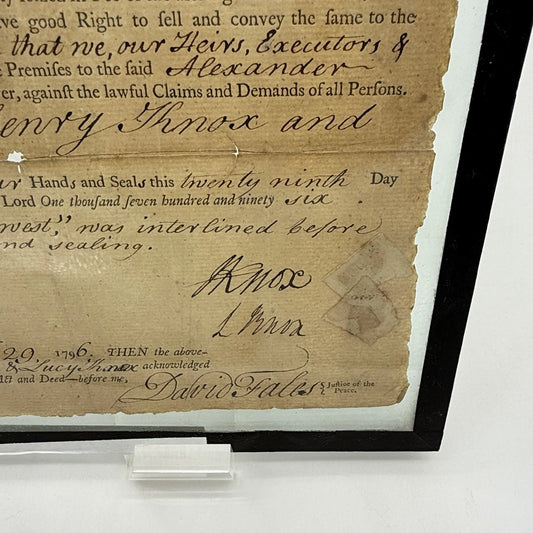 ve good Right to ſell and convey the ſame to the
that we, our Heirs, Executors &
e Premiſes to the ſaid Alexander
er, againſt the lawful Claims and Demands of all Perſons.
enry Knox and
ur Hands and Seals this twenty ninth Day
Lord One thouſand ſeven hundred and ninety six.
west," was interlined before
nd sealing.
HKnox
L Knox
29. 1796. THEN the above-
& Lucy Knox acknowledged
Act and Deed—before me,
David Fales Juſtice of the
Peace.